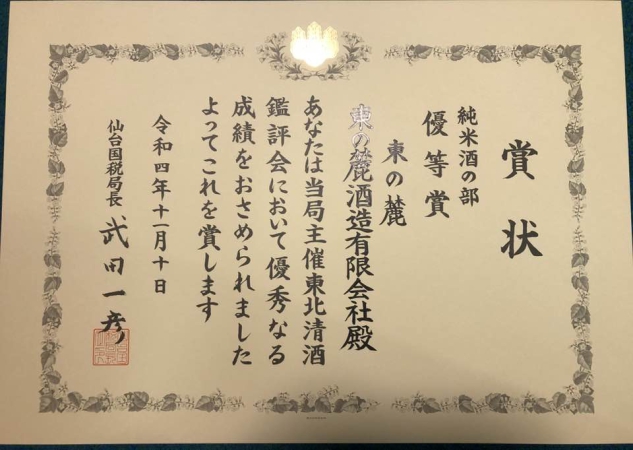 賞状
純米酒の部
優等賞
東の麓
東の麓酒造有限会社殿
あなたは当局主催東北清酒
鑑評会において優秀なる
成績をおさめられました
よってこれを賞します
令和四年十一月十日
仙台国税局長 武田一彦